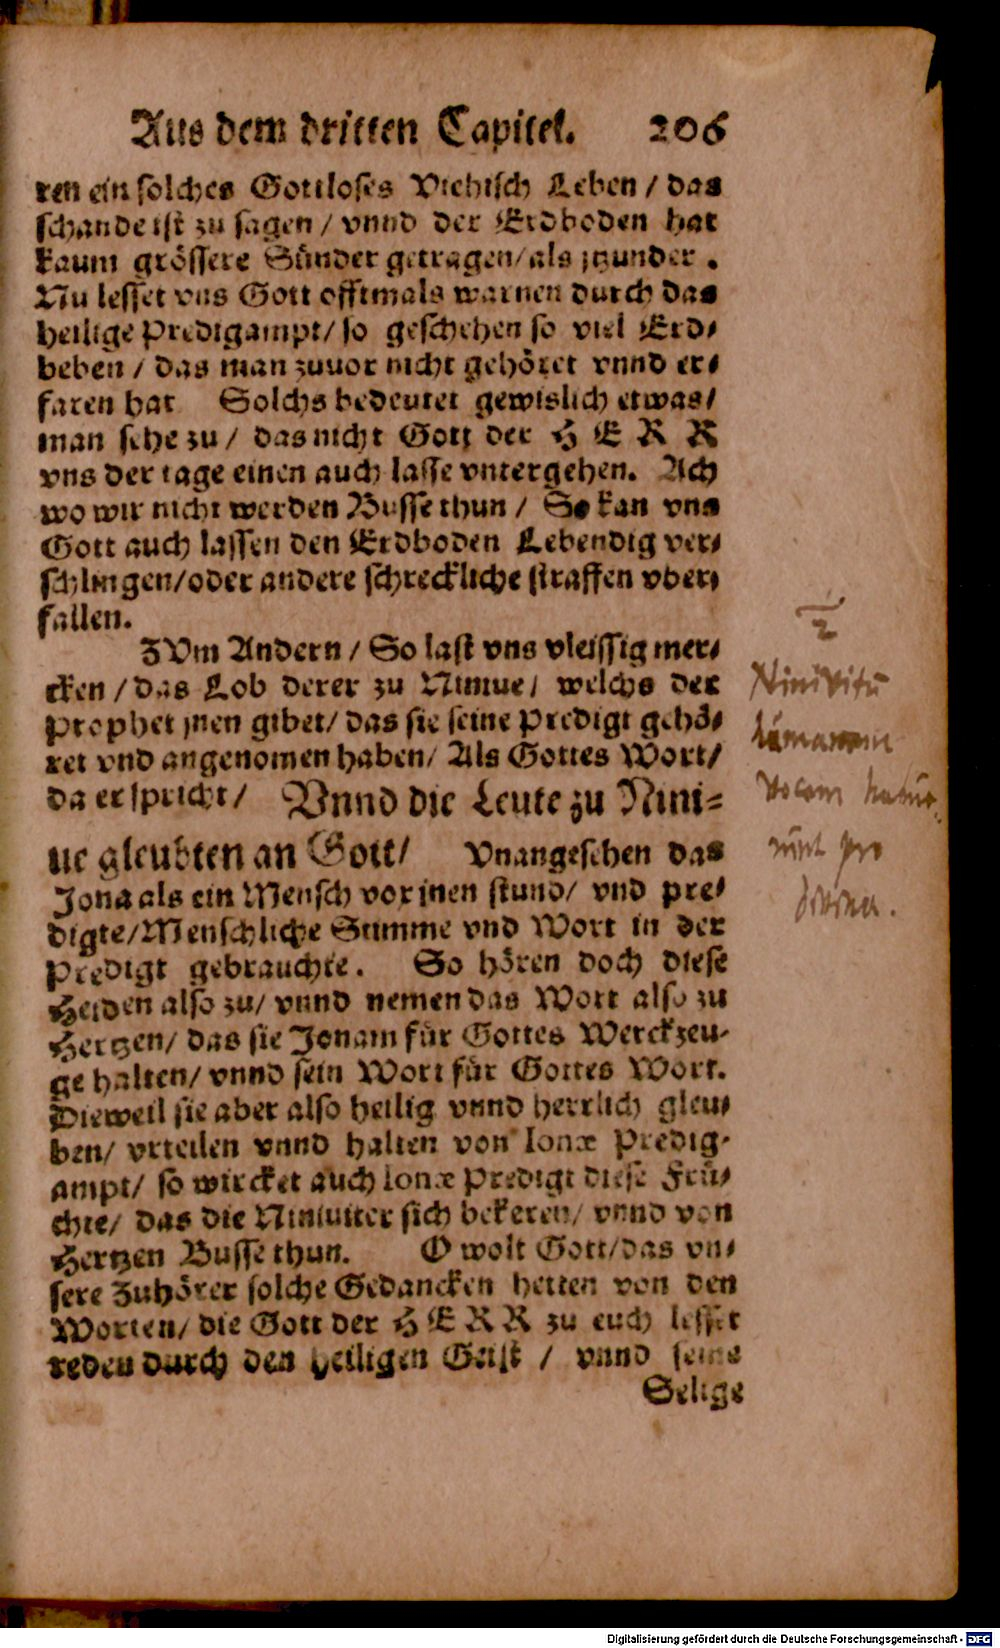 Aus dem dritten Capitel. 206
ren ein solches Gottloses Viehisch Leben / das
schande ist zu sagen / vnnd der Erdboden hat
kaum grössere Sünder getragen / als jtzunder.
Nu lesset vns Gott offtmals warnen durch das
heilige Predigampt / so geschehen so viel Erd-
beben / das man zuuor nicht gehöret vnnd er-
faren hat Solchs bedeutet gewislich etwas /
man sehe zu / das nicht Gott der H E R R
vns der tage einen auch lasse vntergehen. Ach
wo wir nicht werden Busse thun / So kan vns
Gott auch lassen den Erdboden Lebendig ver-
schlingen / oder andere schreckliche straffen vber-
fallen.
ZVm Andern / So last vns vleissig mer-
cken / das Lob derer zu Niniue / welchs der
Prophet jnen gibet / das sie seine Predigt gehö-
ret vnd angenomen haben / Als Gottes Wort /
da er spricht / Vnnd die Leute zu Nini-
ue gleubten an Gott / Vnangesehen das
Jona als ein Mensch vor jnen stund / vnd pre-
digte / Menschliche Stimme vnd Wort in der
Predigt gebrauchte. So hören doch diese
Heiden also zu / vnnd nemen das Wort also zu
Hertzen / das sie Jonam für Gottes Werckzeu-
ge halten / vnnd sein Wort für Gottes Wort.
Dieweil sie aber also heilig vnnd herrlich gleu-
ben / vrteilen vnnd halten von Ionæ Predig-
ampt / so wircket auch Ionæ Predigt diese Frü-
chte / das die Niniuiter sich bekeren / vnnd von
Hertzen Busse thun. O wolt Gott / das vn-
sere Zuhörer solche Gedancken hetten von den
Worten / die Gott der H E R R zu euch lesset
reden durch den heiligen Geist / vnnd seine
Selige
2
Ninivitæ
humanam
vocem
pro
divina.
Digitalisierung gefördert durch die Deutsche Forschungsgemeinschaft - DFG